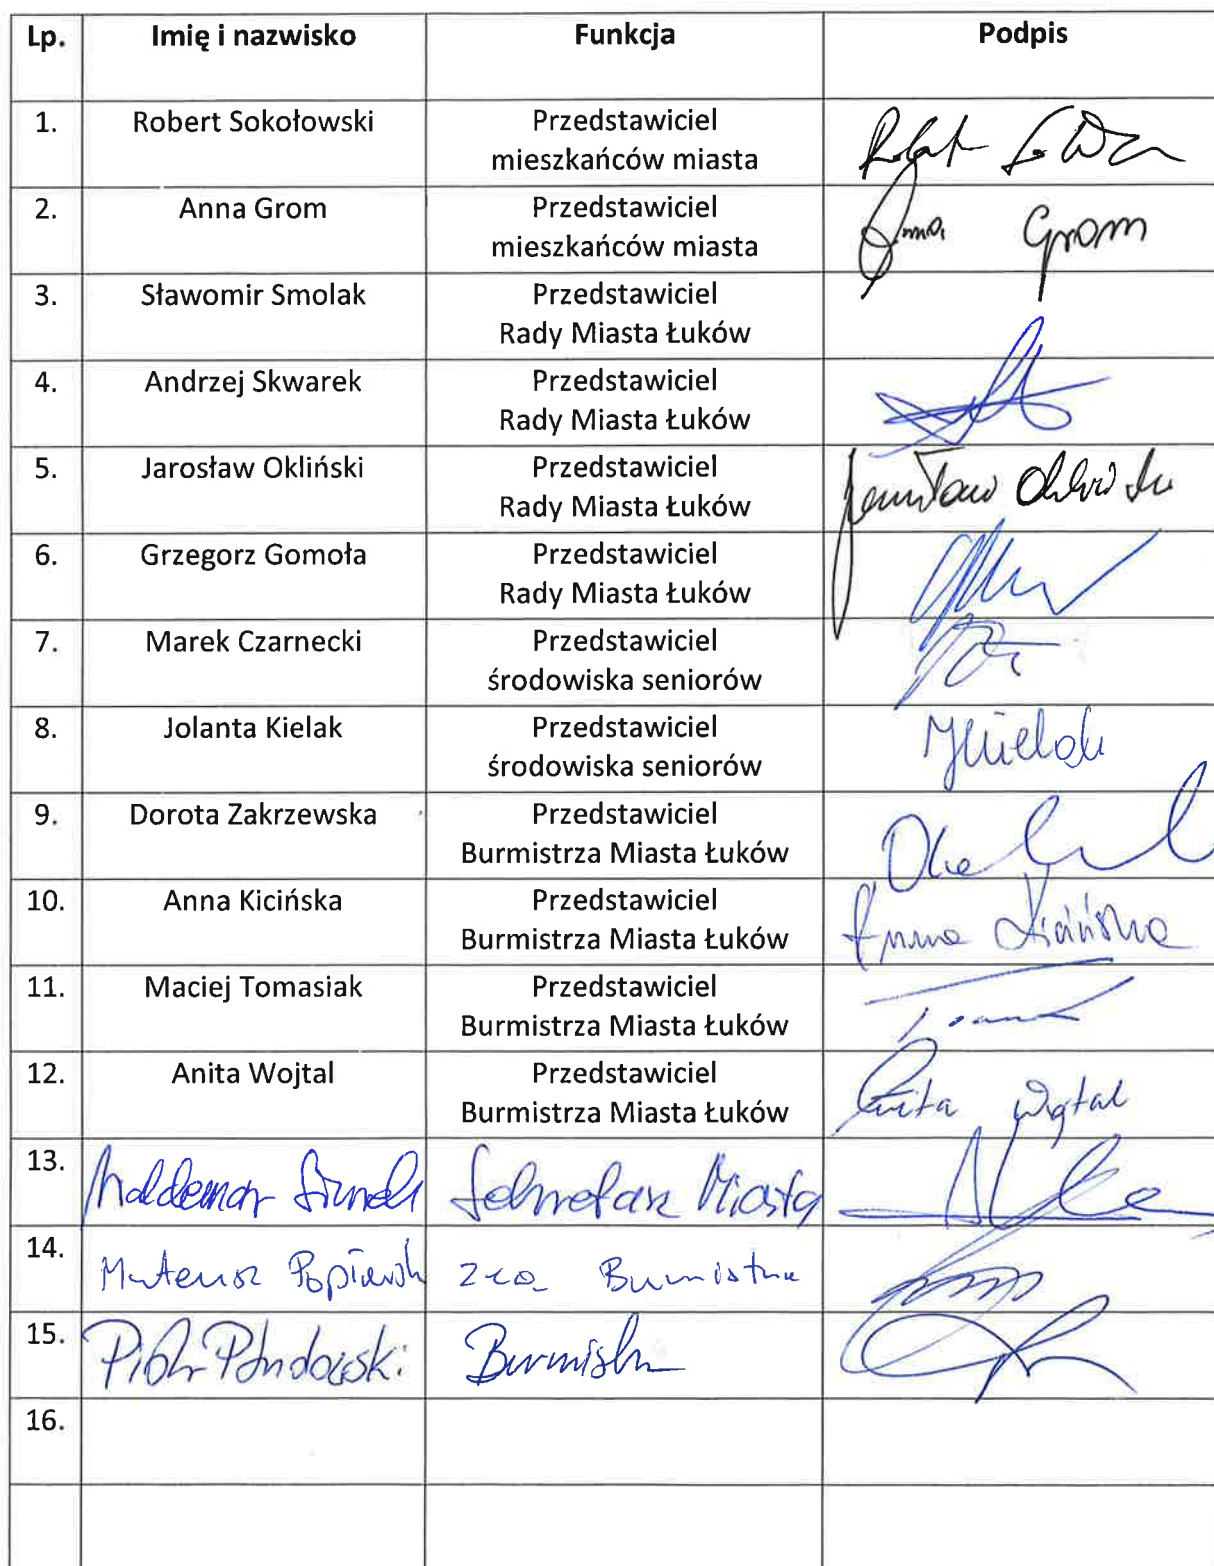 Lp. Imię i nazwisko Funkcja Podpis
1. Robert Sokołowski Przedstawiciel
mieszkańców miasta
2. Anna Grom Przedstawiciel Anna Grom
mieszkańców miasta
3. Sławomir Smolak Przedstawiciel
Rady Miasta Łuków
4. Andrzej Skwarek Przedstawiciel
Rady Miasta Łuków
5. Jarosław Okliński Przedstawiciel Jarosław Okliński
Rady Miasta Łuków
6. Grzegorz Gomoła Przedstawiciel
Rady Miasta Łuków
7. Marek Czarnecki Przedstawiciel
środowiska seniorów
8. Jolanta Kielak Przedstawiciel JKielak
środowiska seniorów
9. Dorota Zakrzewska Przedstawiciel
Burmistrza Miasta Łuków
10. Anna Kicińska Przedstawiciel Anna Kicińska
Burmistrza Miasta Łuków
11. Maciej Tomasiak Przedstawiciel
Burmistrza Miasta Łuków
12. Anita Wojtal Przedstawiciel Anita Wojtal
Burmistrza Miasta Łuków
13. Waldemar Sekretarz Miasta
14. Mateusz Popławski Z-ca Burmistrza
15. Piotr Płudowski Burmistrz
16.